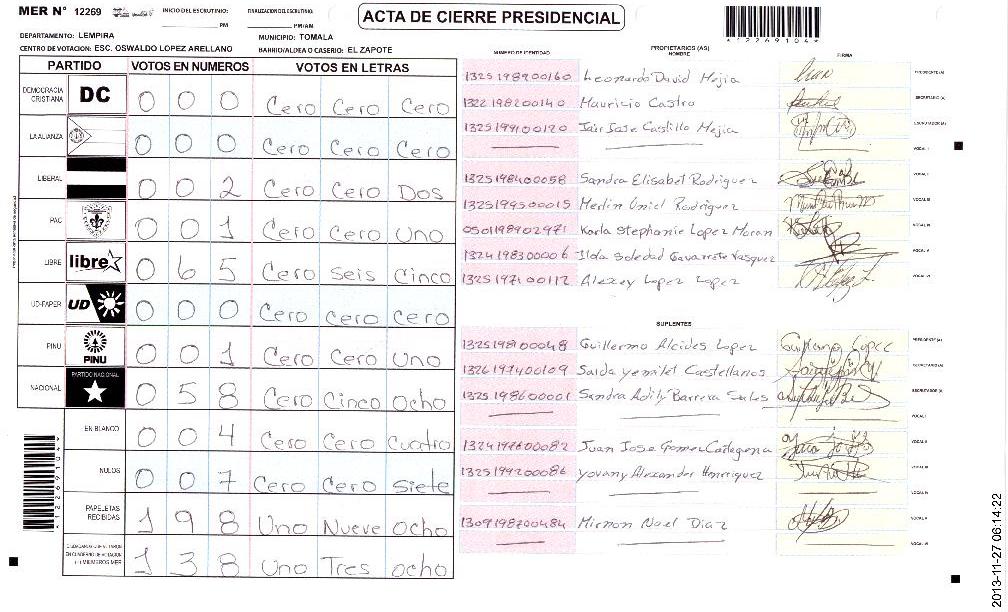 MER Nº 12269
INICIO DEL ESCRUTINIO: PM
FINALIZACION DEL ESCRUTINIO: PM/AM
ACTA DE CIERRE PRESIDENCIAL
*12269104*
DEPARTAMENTO: LEMPIRA
MUNICIPIO: TOMALA
CENTRO DE VOTACION: ESC. OSWALDO LOPEZ ARELLANO
BARRIO/ALDEA O CASERIO: EL ZAPOTE
PARTIDO VOTOS EN NUMEROS VOTOS EN LETRAS
DEMOCRACIA CRISTIANA DC 0 0 0 Cero Cero Cero
LA ALIANZA 0 0 0 Cero Cero Cero
LIBERAL 0 0 2 Cero Cero Dos
PAC 0 0 1 Cero Cero Uno
LIBRE libre 0 6 5 Cero Seis Cinco
UD-FAPER UD 0 0 0 Cero Cero Cero
PINU PINU 0 0 1 Cero Cero Uno
NACIONAL PARTIDO NACIONAL 0 5 8 Cero Cinco Ocho
EN BLANCO 0 0 4 Cero Cero Cuatro
NULOS 0 0 7 Cero Cero Siete
PAPELETAS RECIBIDAS 1 9 8 Uno Nueve Ocho
1 3 8 Uno Tres Ocho
*12269104*
NUMERO DE IDENTIDAD PROPIETARIOS (AS) NOMBRE FIRMA
1325198900160 Leonardo David Mejia PRESIDENTE (A)
1322198200140 Mauricio Castro SECRETARIO (A)
1325199100120 Jair Jose Castillo Mejia ESCRUTADOR (A)
VOCAL I
1325198400058 Sandra Elisabet Rodriguez VOCAL II
1325199500015 Merlin Uniel Rodriguez VOCAL III
0501198902971 Karla Stephanie Lopez Moran VOCAL IV
1324198300006 Ilda Soledad Gavarrete Vasquez VOCAL V
1325197100112 Alexey Lopez Lopez VOCAL VI
SUPLENTES
1325198100048 Guillermo Alcides Lopez PRESIDENTE (A)
1326197400109 Saida Yemitel Castellanos SECRETARIO (A)
1325198600001 Sandra Adily Barrera ESCRUTADOR (A)
VOCAL I
1324197600082 Juan Jose Gomez Cartagena VOCAL II
1325199200086 Yovany Alexander Henriquez VOCAL III
VOCAL IV
1309198700484 Mirnon Noel Diaz VOCAL V
VOCAL VI
2013-11-27 06:14:22